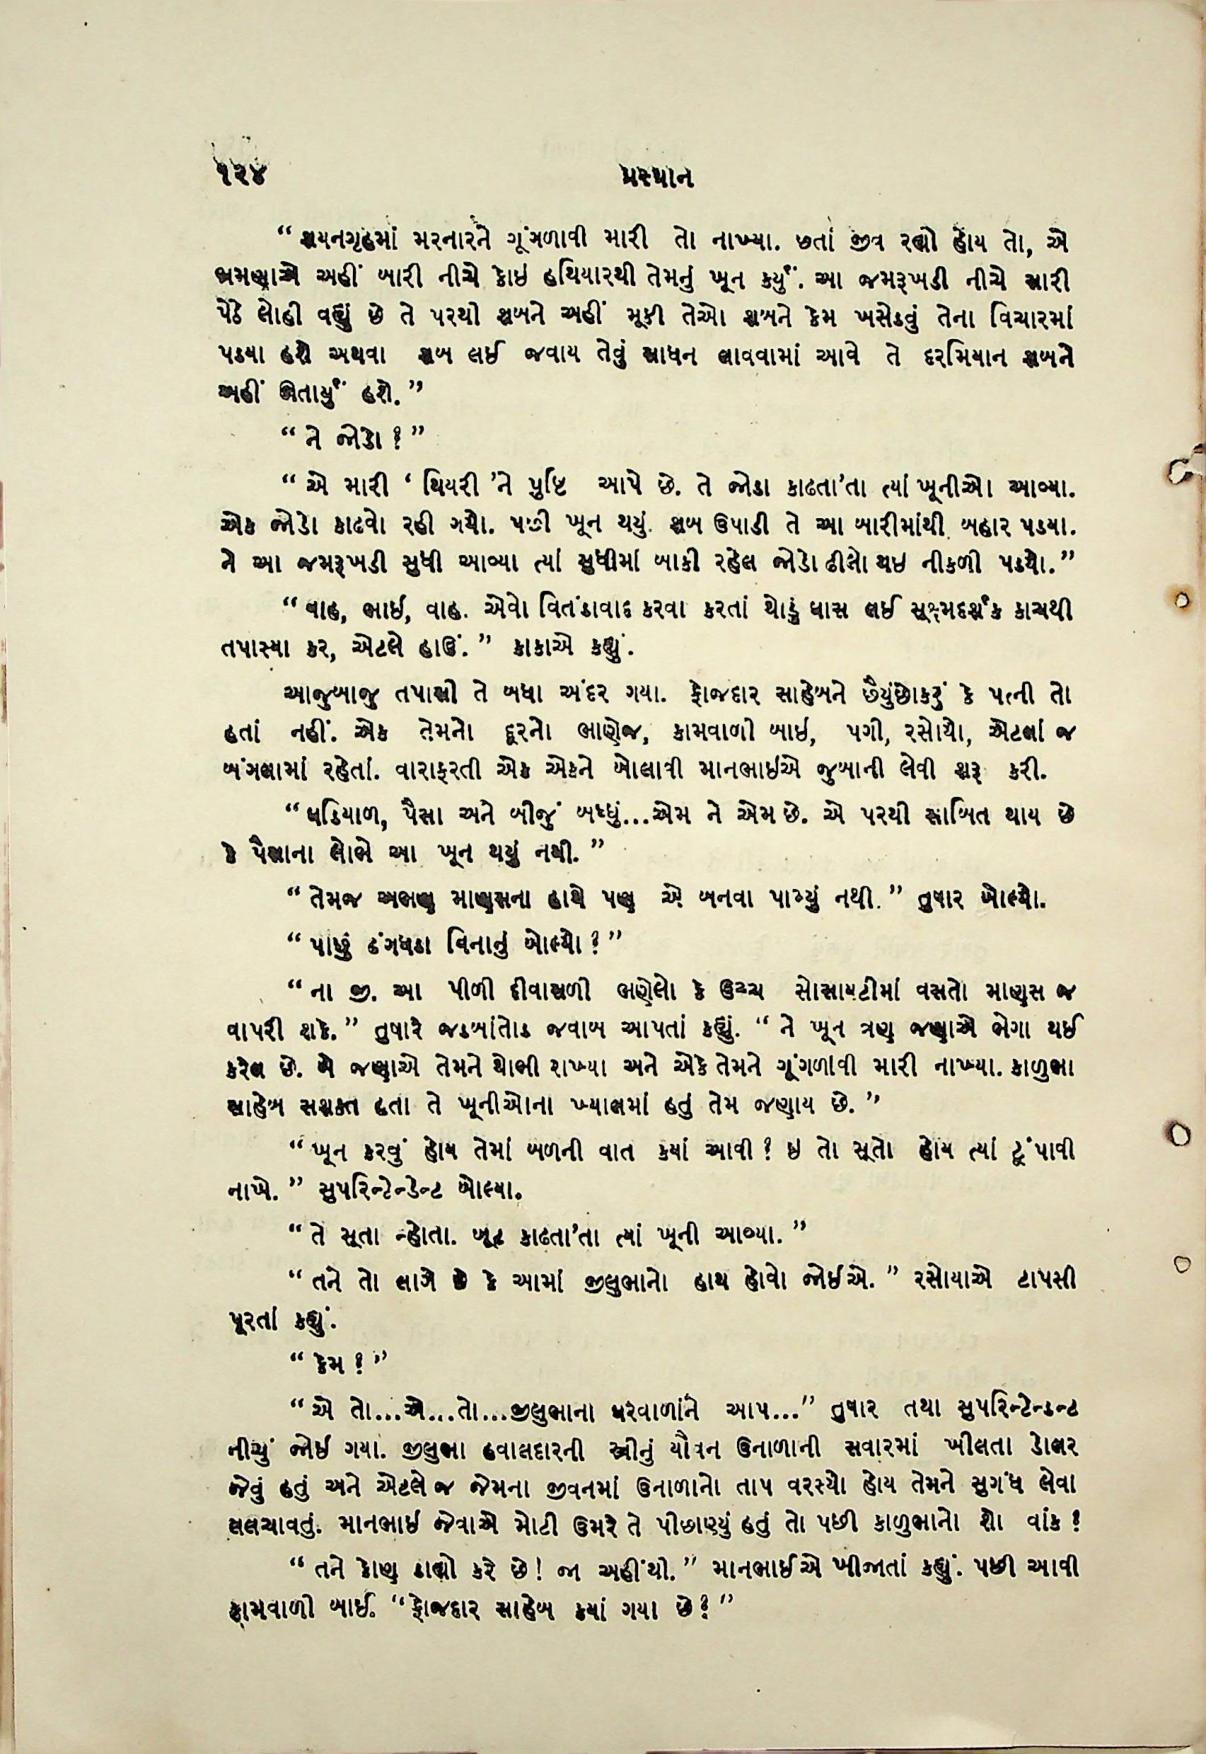 ૧૨૪
પ્રસ્થાન
“ શયનગૃહમાં મરનારને ગૂંગળાવી મારી તો નાખ્યા. છતાં જીવ રહ્યો હોય તો, એ
ભ્રમણાએ અહીં બારી નીચે કોઇ હથિયારથી તેમનું ખૂન કર્યું. આ જમરૂખડી નીચે સારી
પેઠે લોહી વહ્યું છે તે પરથી શબને અહીં મૂકી તેઓ શબને કેમ ખસેડવું તેના વિચારમાં
પડયા હશે અથવા શબ લઈ જવાય તેવું સાધન લાવવામાં આવે તે દરમિયાન શબને
અહીં ઊતાર્યું હશે.”
“ ને જોડો ? ”
“ એ મારી ‘ થિયરી ’ને પુષ્ટિ આપે છે. તે જોડા કાઢતા’તા ત્યાં ખૂનીઓ આવ્યા.
એક જોડો કાઢવો રહી ગયો. પછી ખૂન થયું. શબ ઉપાડી તે આ બારીમાંથી બહાર પડયા.
ને આ જમરૂખડી સુધી આવ્યા ત્યાં સુધીમાં બાકી રહેલ જોડો ઢીલો થઇ નીકળી પડયો.”
“ વાહ, ભાઈ, વાહ. એવો વિતંડાવાદ કરવા કરતાં થોડું ઘાસ લઈ સૂક્ષ્મદર્શક કાચથી
તપાસ્યા કર, એટલે હાઉં. ” કાકાએ કહ્યું.
આજુબાજુ તપાસી તે બધા અંદર ગયા. ફોજદાર સાહેબને છૈયુંછોકરું કે પત્ની તો
હતાં નહીં. એક તેમનો દૂરનો ભાણેજ, કામવાળી બાઇ, પગી, રસોયો, એટલાં જ
બંગલામાં રહેતાં. વારાફરતી એક એકને બોલાવી માનભાઇએ જુબાની લેવી શરૂ કરી.
“ ઘડિયાળ, પૈસા અને બીજું બધ્ધું...એમ ને એમ છે. એ પરથી સાબિત થાય છે
કે પૈસાના લોભે આ ખૂન થયું નથી. ”
“ તેમજ અભણ માણસના હાથે પણ એ બનવા પામ્યું નથી. ” તુષાર બોલ્યો.
“ પાછું ઢંગધડા વિનાનું બોલ્યો ? ”
“ ના જી. આ પીળી દીવાસળી ભણેલો કે ઉચ્ચ સોસાયટીમાં વસતો માણસ જ
વાપરી શકે. ” તુષારે જડબાંતોડ જવાબ આપતાં કહ્યું. “ ને ખૂન ત્રણ જણાએ ભેગા થઈ
કરેલ છે. બે જણાએ તેમને થોભી રાખ્યા અને એકે તેમને ગૂંગળાવી મારી નાખ્યા. કાળુભા
સાહેબ સશક્ત હતા તે ખૂનીઓના ખ્યાલમાં હતું તેમ જણાય છે. ”
“ ખૂન કરવું હોય તેમાં બળની વાત કયાં આવી ? ઇ તો સૂતો હોય ત્યાં ટૂંપાવી
નાખે. ” સુપરિન્ટેન્ડેન્ટ બોલ્યા.
“ તે સૂતા ન્હોતા. બૂટ કાઢતા’તા ત્યાં ખૂની આવ્યા. ”
“ તને તો લાગે છે કે આમાં જીલુભાનો હાથ હોવો જોઈએ. ” રસોયાએ ટાપસી
પૂરતાં કહ્યું.
“ કેમ ? ”
“ એ તો...એ...તો...જીલુભાના ઘરવાળાંને આપ...” તુષાર તથા સુપરિન્ટેન્ડન્ટ
નીચું જોઈ ગયા. જીલુભા હવાલદારની સ્ત્રીનું યૌવન ઉનાળાની સવારમાં ખીલતા ડોલર
જેવું હતું અને એટલે જ જેમના જીવનમાં ઉનાળાનો તાપ વરસ્યો હોય તેમને સુગંધ લેવા
લલચાવતું. માનભાઇ જેવાએ મોટી ઉમરે તે પીછાણ્યું હતું તો પછી કાળુભાનો શો વાંક !
“ તને કોણ ડાહ્યો કરે છે ! જા અહીંથી. ” માનભાઈએ ખીજાતાં કહ્યું. પછી આવી
કામવાળી બાઈ. “ ફોજદાર સાહેબ કયાં ગયા છે ? ”